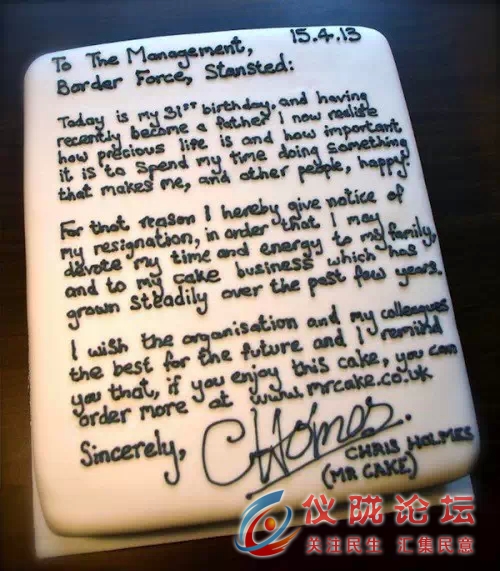 15.4.13
To The Management,
Border Force, Stansted:
Today is my 31st birthday, and having
recently become a father I now realise
how precious life is and how important
it is to spend my time doing something
that makes me, and other people, happy.
For that reason I hereby give notice of
my resignation, in order that I may
devote my time and energy to my family,
and to my cake business which has
grown steadily over the past few years.
I wish the organisation and my colleagues
the best for the future and I remind
you that, if you enjoy this cake, you can
order more at www.mrcake.co.uk
Sincerely,
CHolmes.
CHRIS HOLMES
(MR CAKE)
仪陇论坛
关注民生 汇集民意